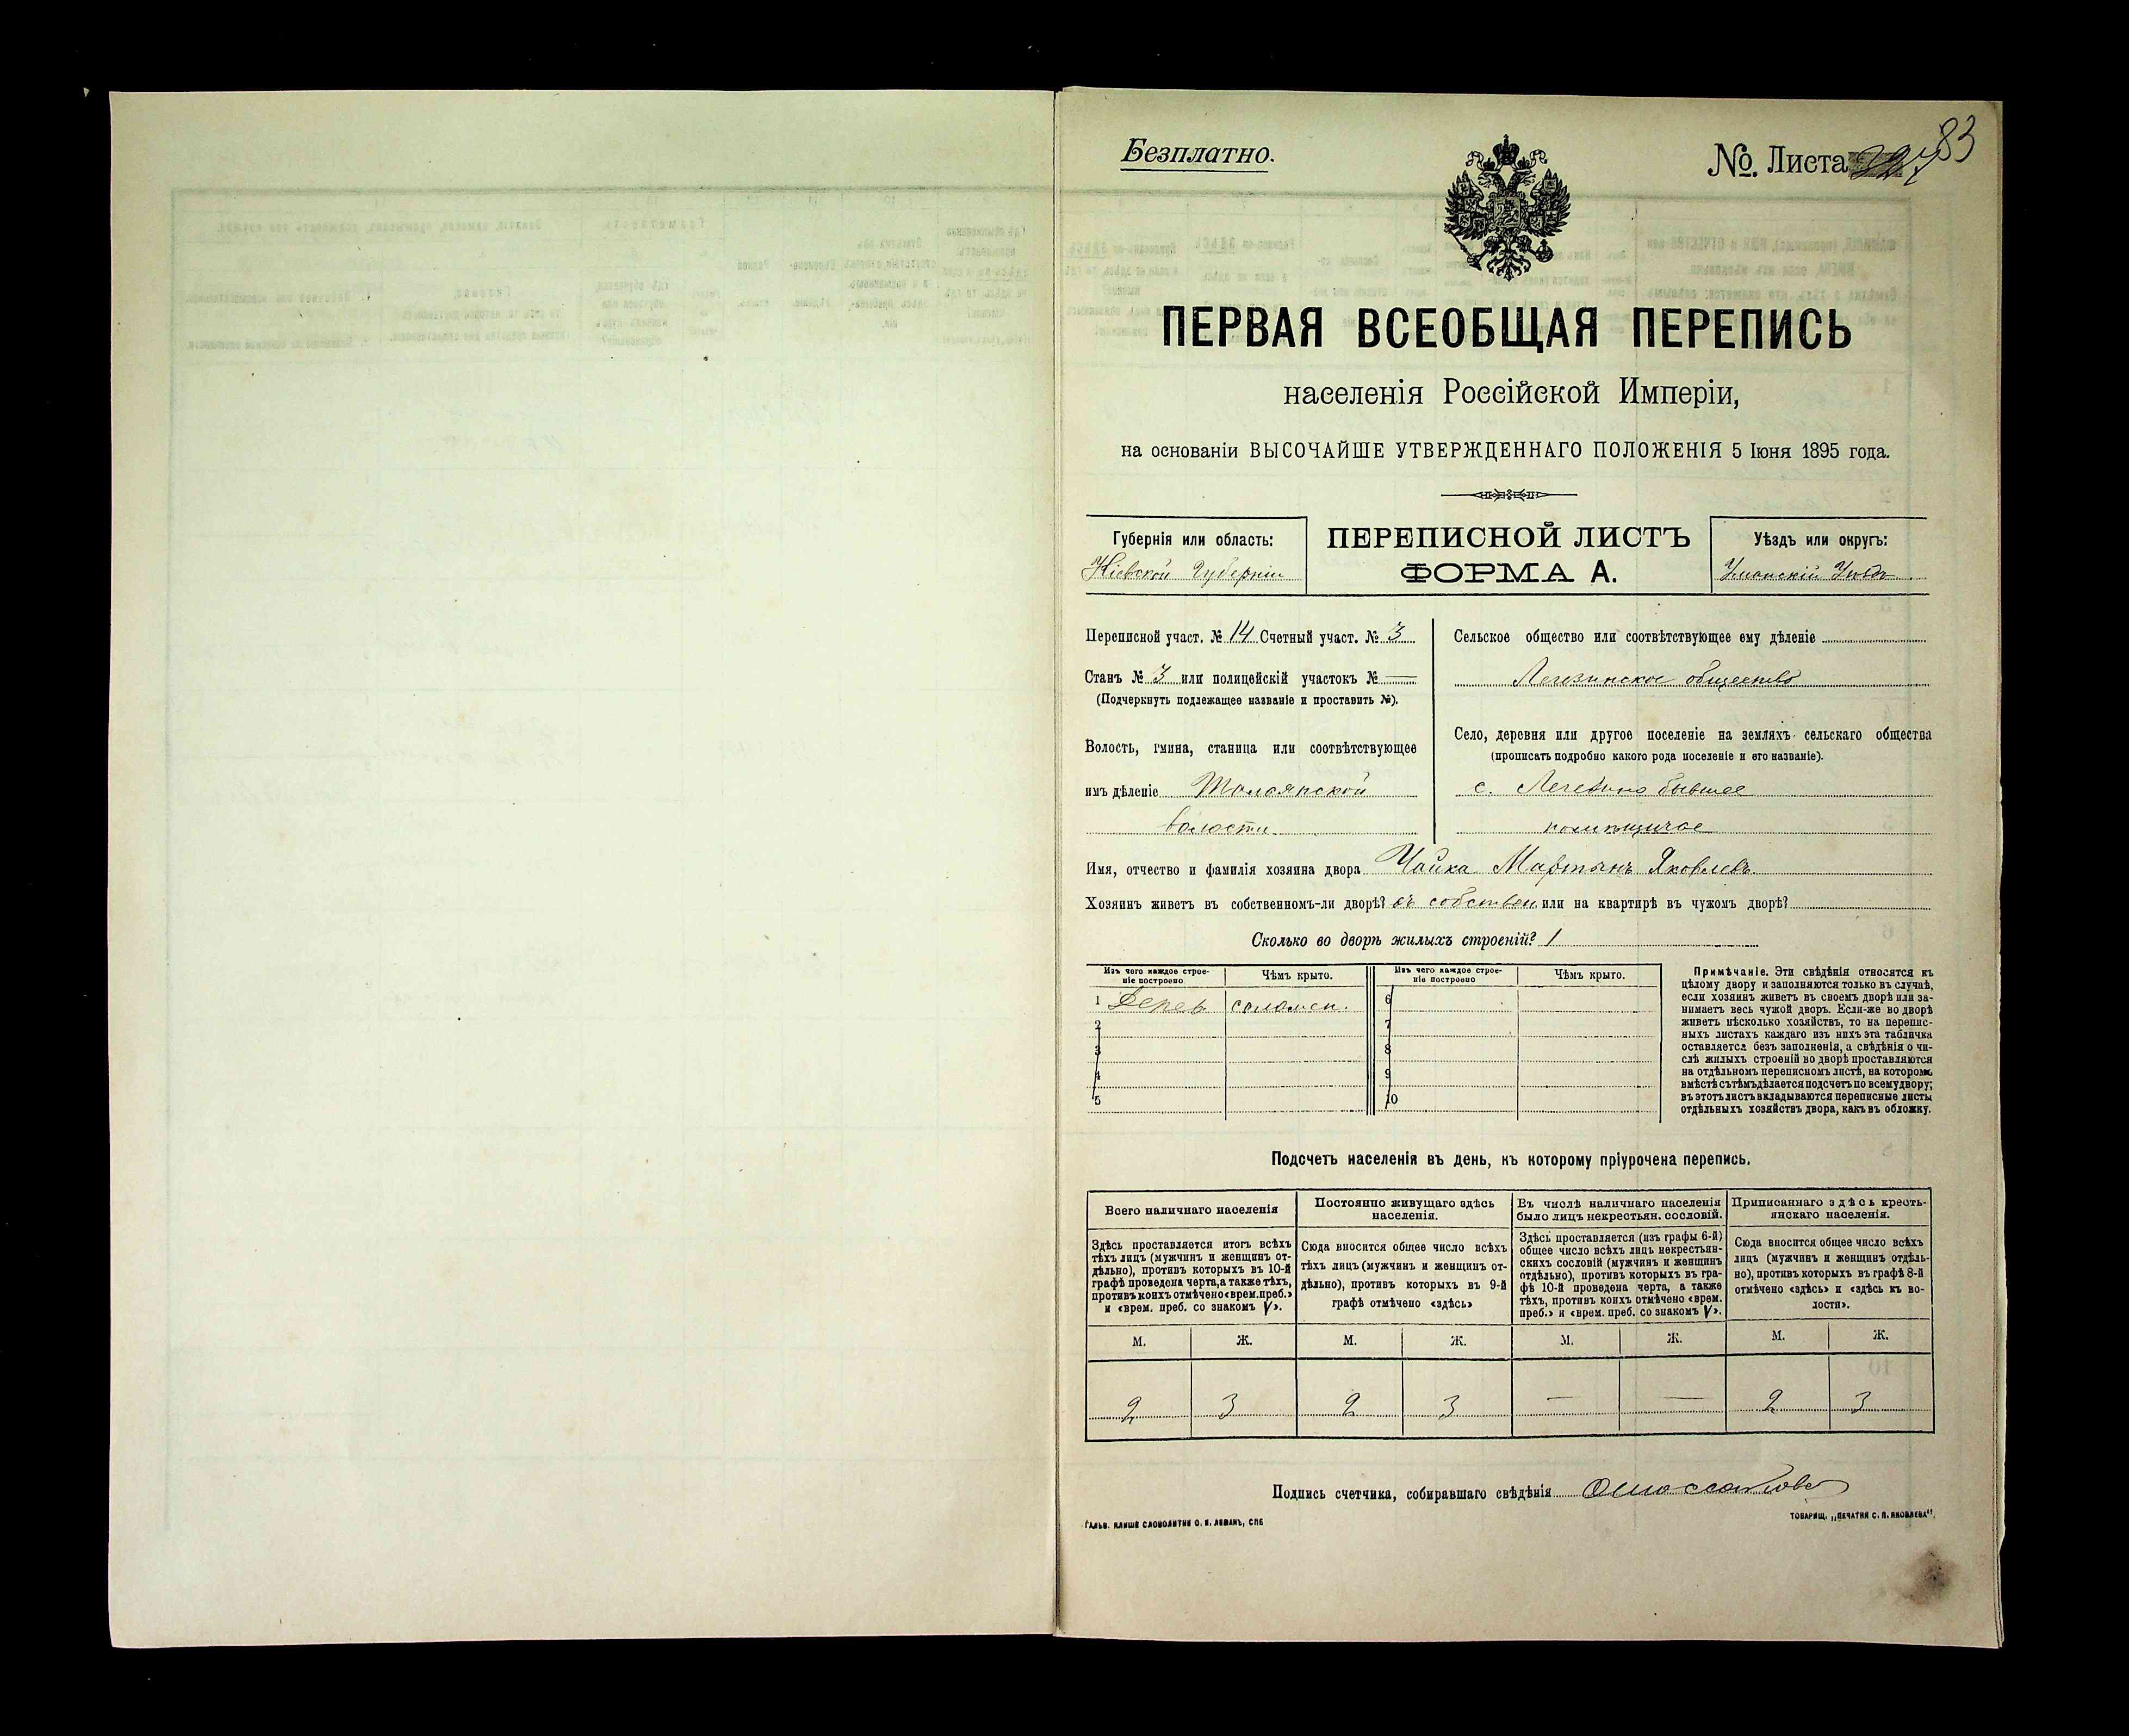 Безплатно.
№. Листа 83
ПЕРВАЯ ВСЕОБЩАЯ ПЕРЕПИСЬ
населенія Россійской Имперіи,
на основаніи ВЫСОЧАЙШЕ УТВЕРЖДЕННАГО ПОЛОЖЕНІЯ 5 Іюня 1895 года.
Губернія или область:
Кіевской Губерніи
ПЕРЕПИСНОЙ ЛИСТЪ
ФОРМА А.
Уѣздъ или округъ:
Уманскій Уѣздъ
Переписной участ. № 14 Счетный участ. № 3
Станъ № 3 или полицейскій участокъ № —
(Подчеркнуть подлежащее названіе и проставить №).
Волость, гмина, станица или соотвѣтствующее
имъ дѣленіе
волости
Сельское общество или соотвѣтствующее ему дѣленіе
Легезинское общество
Село, деревня или другое поселеніе на земляхъ сельскаго общества
(прописать подробно какого рода поселеніе и его названіе).
с. Легезино бывшее
Имя, отчество и фамилія хозяина двора Чайка Мартынъ Яковлевъ
Хозяинъ живетъ въ собственномъ-ли дворѣ? въ собствен. или на квартирѣ въ чужомъ дворѣ?
Сколько во дворѣ жилыхъ строеній? 1
Изъ чего каждое строе-
ніе построено
Чѣмъ крыто.
1 Дерев. солομεн.
2
3
4
5
Изъ чего каждое строе-
ніе построено
Чѣмъ крыто.
6
7
8
9
10
Примѣчаніе. Эти свѣдѣнія относятся къ
цѣлому двору и заполняются только въ случаѣ,
если хозяинъ живетъ въ своемъ дворѣ или за-
нимаетъ весь чужой дворъ. Если-же во дворѣ
живетъ нѣсколько хозяйствъ, то на перепис-
ныхъ листахъ каждаго изъ нихъ эта табличка
оставляется безъ заполненія, а свѣдѣнія о чи-
слѣ жилыхъ строеній во дворѣ проставляются
на отдѣльномъ переписномъ листѣ, на которомъ
вмѣстѣ съ тѣмъ дѣлается подсчетъ по всему двору;
въ этотъ листъ вкладываются переписные листы
отдѣльныхъ хозяйствъ двора, какъ въ обложку.
Подсчетъ населенія въ день, къ которому пріурочена перепись.
Всего наличнаго населенія
Здѣсь проставляется итогъ всѣхъ
тѣхъ лицъ (мужчинъ и женщинъ от-
дѣльно), противъ которыхъ въ 10-й
графѣ проведена черта, а также тѣхъ,
противъ коихъ отмѣчено «врем. преб.»
и «врем. преб. со знакомъ V».
Постоянно живущаго здѣсь
населенія.
Сюда вносится общее число всѣхъ
тѣхъ лицъ (мужчинъ и женщинъ от-
дѣльно), противъ которыхъ въ 9-й
графѣ отмѣчено «здѣсь»
Въ числѣ наличнаго населенія
было лицъ некрестьян. сословій.
Здѣсь проставляется (изъ графы 6-й)
общее число всѣхъ лицъ некрестьян-
скихъ сословій (мужчинъ и женщинъ
отдѣльно), противъ которыхъ въ гра-
фѣ 10-й проведена черта, а также
тѣхъ, противъ коихъ отмѣчено «врем.
преб.» и «врем. преб. со знакомъ V».
Приписаннаго здѣсь кресть-
янскаго населенія.
Сюда вносится общее число всѣхъ
лицъ (мужчинъ и женщинъ отдѣль-
но), противъ которыхъ въ графѣ 8-й
отмѣчено «здѣсь» и «здѣсь къ во-
лости».
М. Ж. М. Ж. М. Ж. М. Ж.
2 3 2 3 — — 2 3
Подпись счетчика, собиравшаго свѣдѣнія
ГАЛЬВ. КЛИШЕ СЛОВОЛИТНИ О. И. ЛЕМАНЪ, СПБ
ТОВАРИЩ. „ПЕЧАТНЯ С. П. ЯКОВЛЕВА“.